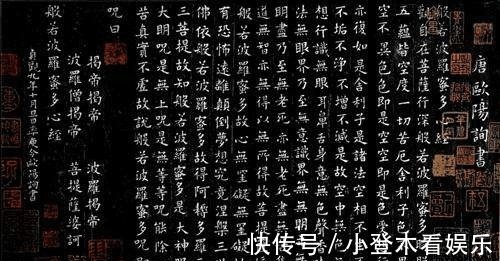 唐歐陽詢書
般若波羅蜜多心經
觀自在菩薩行深般若波羅蜜多
五蘊皆空度一切苦厄舍利子色
空不異色色即是空空即是色受
亦復如是舍利子是諸法空相不
不垢不淨不增不減是故空中無
想行識無眼耳鼻舌身意無色聲
法無眼界乃至無意識界無無
明盡乃至無老死亦無老死盡無
道無智亦無得以無所得故菩提
般若波羅蜜多故心無罣礙無罣礙
有恐怖遠離顛倒夢想究竟涅槃三世
佛依般若波羅蜜多故得阿耨多羅三
三菩提故知般若波羅蜜多是大神
大明呪是無上呪是無等等呪能除
苦真實不虛故說般若波羅蜜多呪即
呪曰
揭帝揭帝 波羅揭帝
波羅僧揭帝 菩提薩婆訶
般若波羅蜜多心經
貞觀九年十月旦日率更令歐陽詢書
快传号/小登木看娱乐